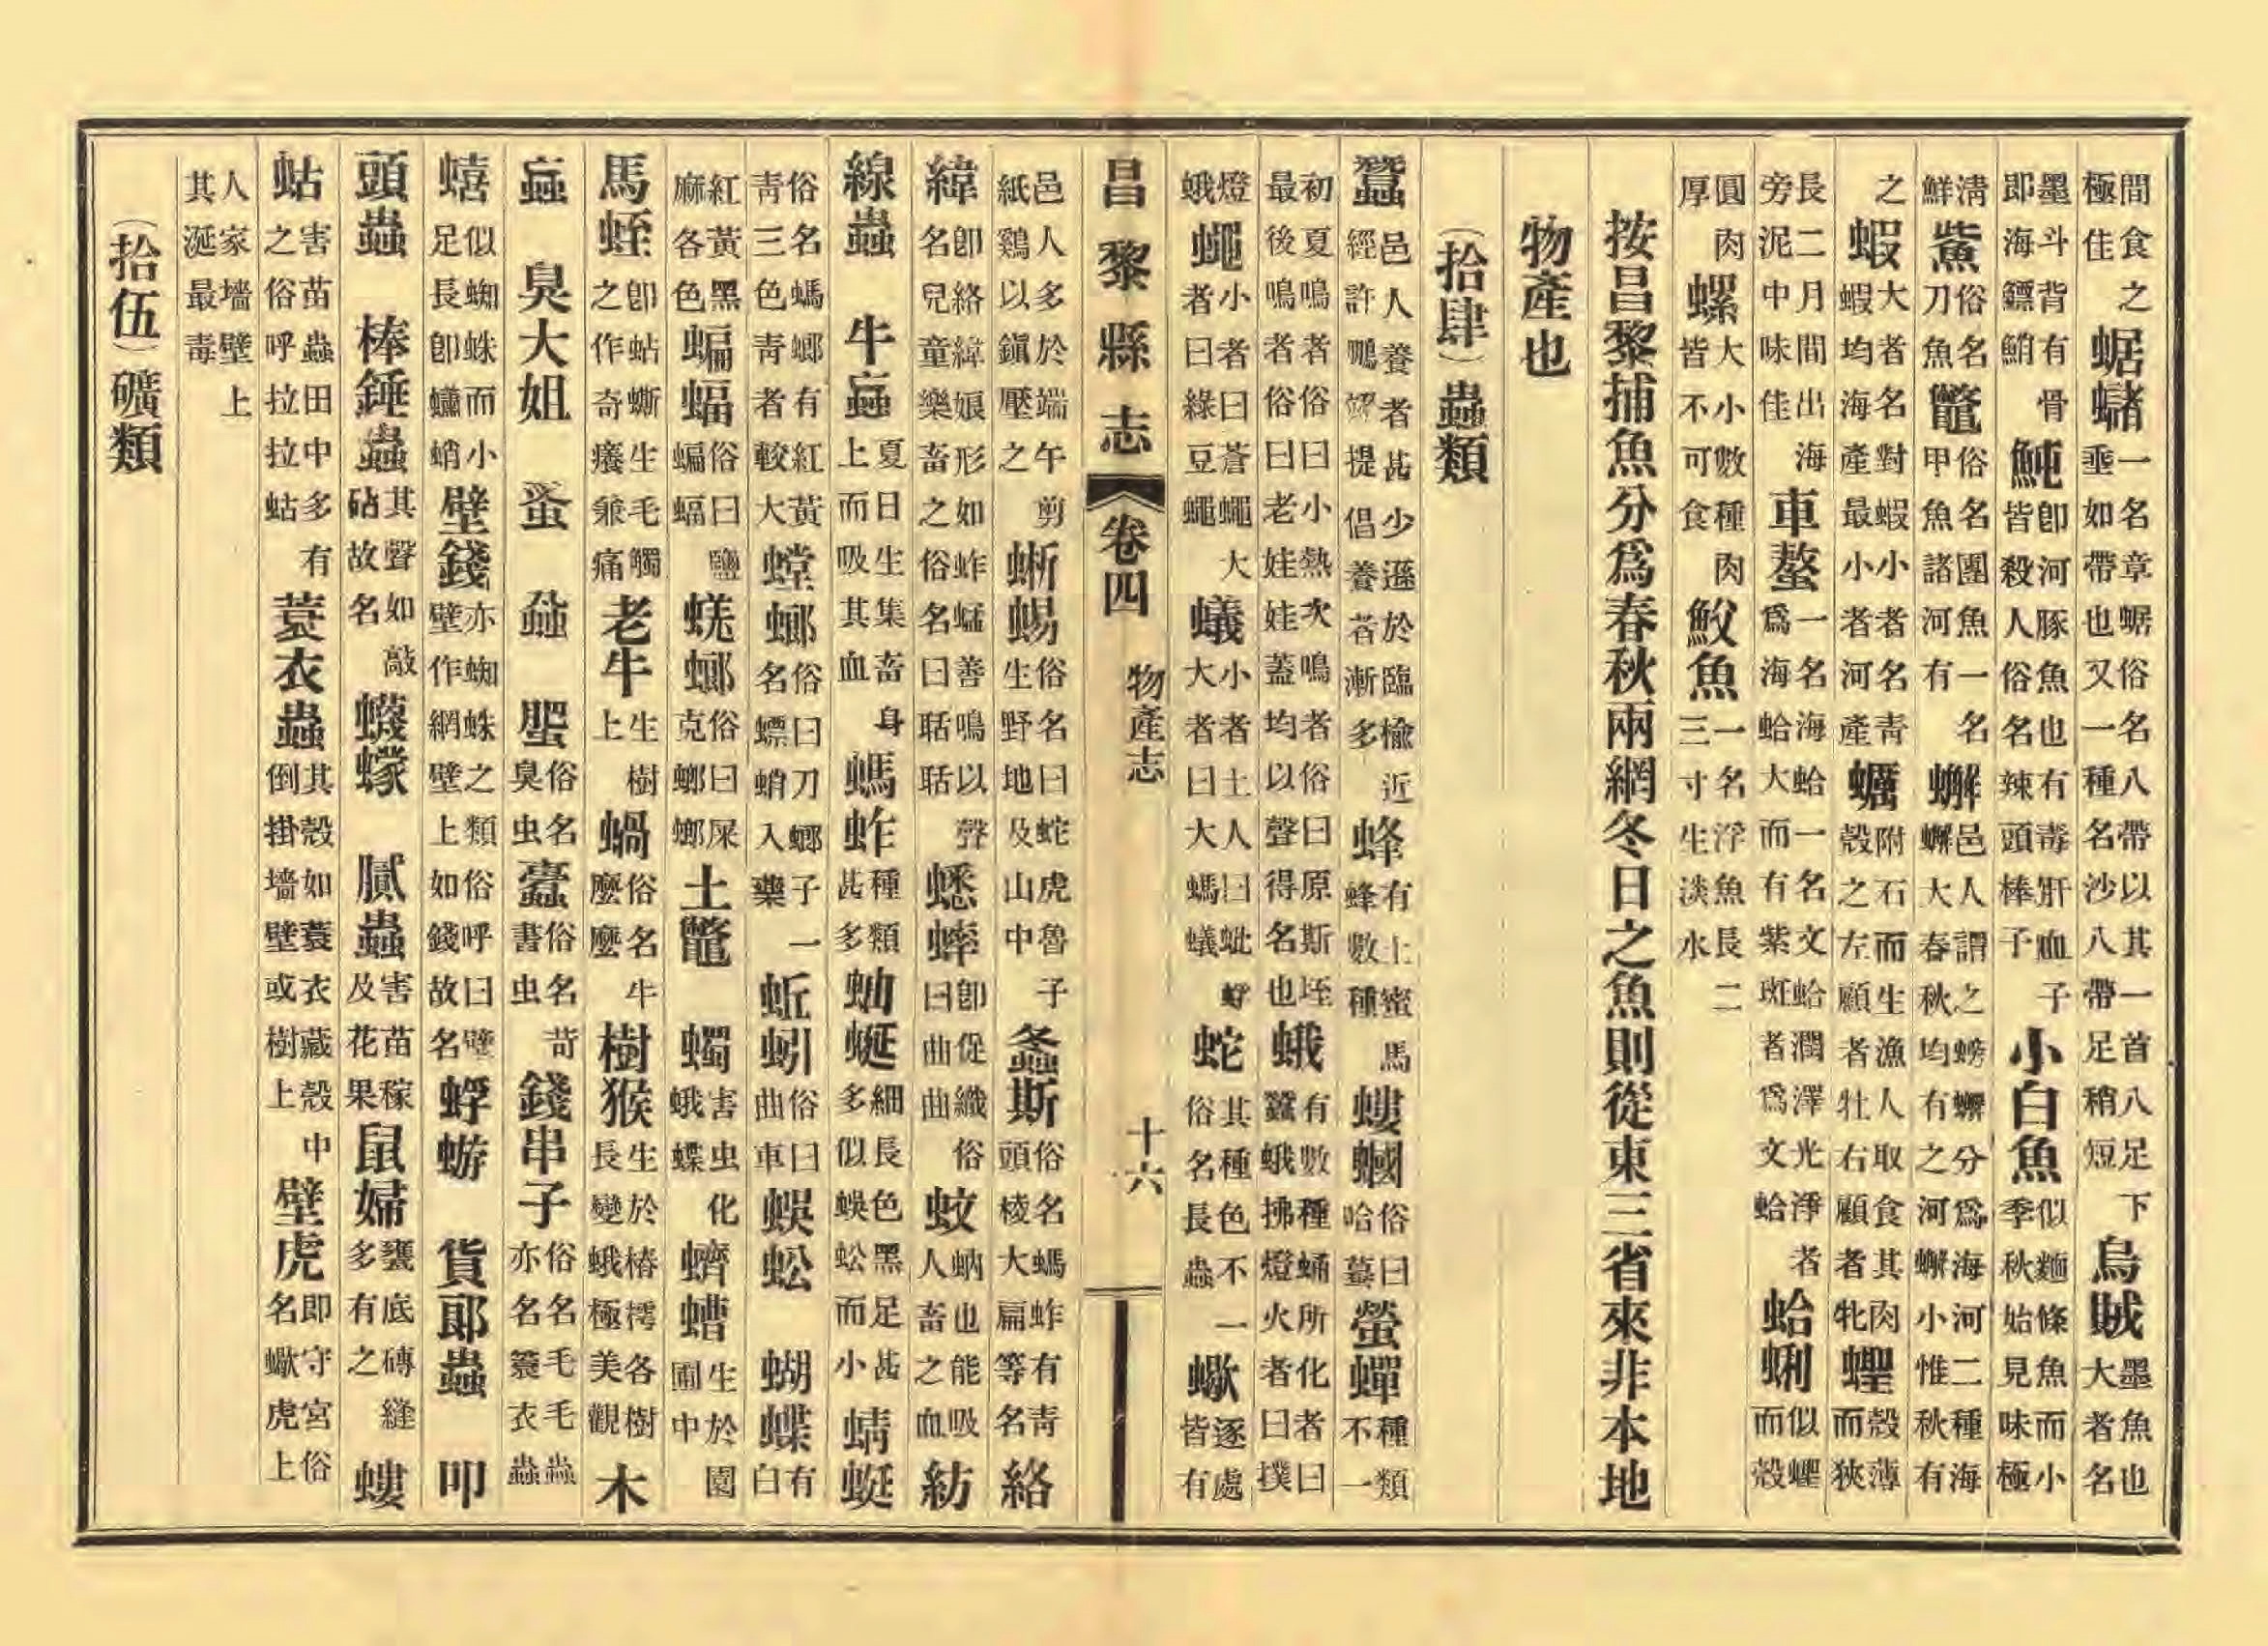 間食之極佳蜛蠩一名章蜛俗名八帶以其一首八足下垂如帶也又一種名沙八帶足稍短烏賊墨魚也大者名
墨斗背有骨即海鏢鮹魨即河豚魚也有毒肝血子皆殺人俗名辣頭棒子小白魚似麵條魚而小季秋始見味極
清鮮鮆俗名刀魚鼈俗名團魚一名甲魚諸河有蠏邑人謂之螃蠏分爲海河二種海蠏大春秋均有之河蠏小惟秋有
之蝦大者名對蝦小者名青蝦均海產最小者河產蠣附石而生漁人取食其肉殼之左顧者牡右顧者牝蟶殼薄而狹
長二月間出海旁泥中味佳車螯一名海蛤一名文蛤潤澤光淨者爲海蛤大而有紫斑者爲文蛤蛤蜊似蟶而殼
圓肉厚肉螺大小數種肉皆不可食鮫魚一名浮魚長二三寸生淡水
按昌黎捕魚分爲春秋兩網冬日之魚則從東三省來非本地
物產也
(拾肆)蟲類
蠶邑人養者甚少遜於臨榆近經許鵬翊提倡養者漸多蜂有土蜜馬蜂數種螻蟈俗曰哈蟇螢蟬種類不一
初夏鳴者俗曰小熱次鳴者俗曰原斯垤最後鳴者俗曰老娃娃蓋均以聲得名也蛾有數種蛹所化者曰蠶蛾拂燈火者曰撲
燈蛾蠅小者曰蒼蠅大者曰綠豆蠅蟻小者土人曰蚍蜉大者曰大螞蟻蛇其種色不一俗名長蟲蠍逐處皆有
昌黎縣志 卷四 物產志 十六
邑人多於端午剪紙鷄以鎭壓之蜥蜴俗名曰蛇虎魯子生野地及山中螽斯俗名螞蚱有青頭棱大扁等名絡
緯即絡緯娘形如蚱蜢善鳴以聲名兒童樂畜之俗名曰聒聒蟋蟀即促織俗曰曲曲蚊蚋也能吸人畜之血紡
線蟲 牛蝱夏日生集畜身上而吸其血螞蚱種類甚多蚰蜒細長色黑足甚多似蜈蚣而小蜻蜓
俗名螞螂有紅黃青三色青者較大螳螂俗曰刀螂子一名螵蛸入藥蚯蚓俗曰曲車蜈蚣 蝴蝶有白
紅黃黑麻各色蝙蝠俗曰鹽蝙蝠蜣螂俗曰屎克螂螂土鼈 蠋害虫化蛾蝶蠐螬生於園圃中
馬蛭即蛄蟖生毛觸之作奇癢兼痛老牛生樹上蝸俗名牛麼麼樹猴生於椿樗各樹長變蛾極美觀木
蝱 臭大姐 蚤 蝨 蜰俗名臭虫蠹俗名書虫苛錢串子俗名毛毛蟲亦名簑衣蟲
蟢似蜘蛛而小足長即蠨蛸壁錢亦蜘蛛之類俗呼曰壁壁作網壁上如錢故名蜉蝣 貨郎蟲 叩
頭蟲 棒錘蟲其聲如敲砧故名蠛蠓 膩蟲害苗稼及花果鼠婦甕底磚縫多有之螻
蛄害苗蟲田中多有之俗呼拉拉蛄蓑衣蟲其殼如蓑衣藏殼中倒掛墻壁或樹上壁虎即守宮俗名蠍虎上
人家墻壁上其涎最毒
(拾伍)礦類